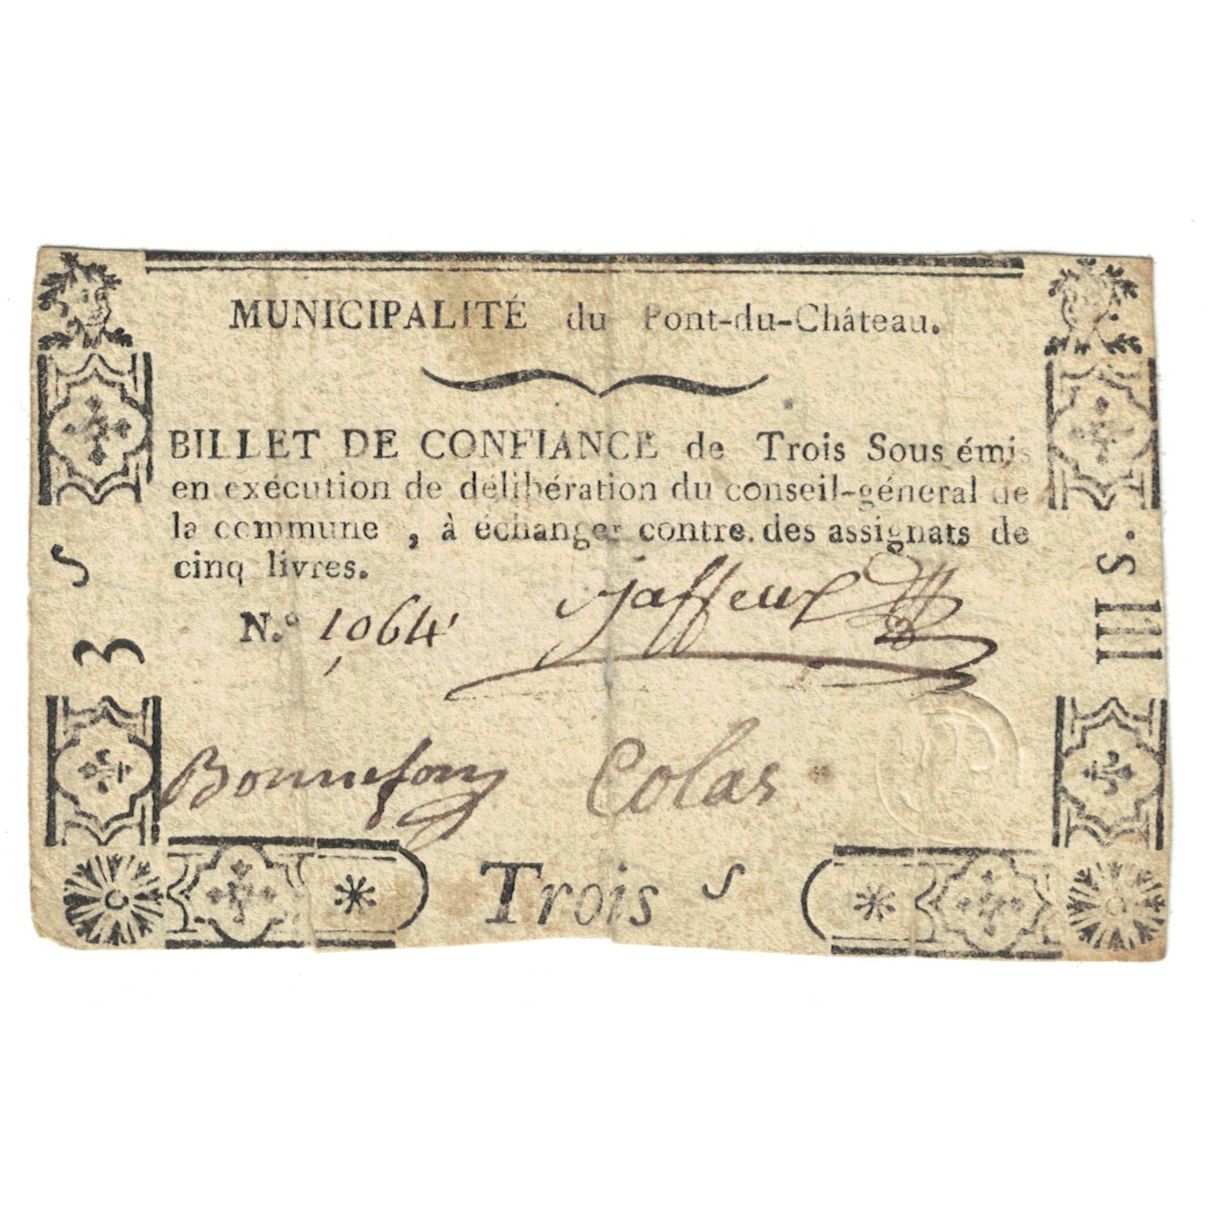 MUNICIPALITÉ du Pont-du-Château.
BILLET DE CONFIANCE de Trois Sous émis
en exécution de délibération du conseil-général de
la commune , à échanger contre. des assignats de
cinq livres.
N.º 1,064
Jaffeux
Bonnefoy Colas
3 S
III S.
Trois S